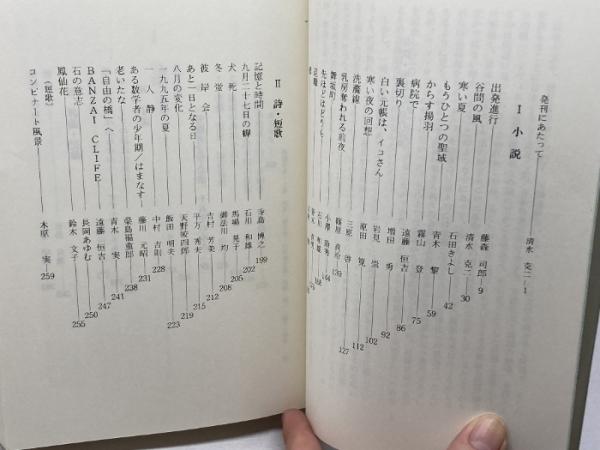 発刊にあたって――清水 克二―1
I 小説
出発進行――藤森 司郎―9
谷間の風――清水 克二―30
寒い夏――石田きよし 42
もうひとつの聖域――青木 黎 59
からす揚羽――霧山 登 75
病院で――遠藤 恒吉 86
裏切り――増田 勇 92
白い元帳は、イコさん――岩見 崇 102
寒い夜の回想――原田 寛 112
洗濯線――三原 啓 127
乳房奪われる前夜――篠原 139
舞坂町――小澤
先はどほどうも
II 詩・短歌
記憶と時間――寺島 博之 199
九月二十七日の蟬――石川 和雄 202
犬死――馬場 晃子 205
冬蛍――御法川 均 208
彼岸会――吉村 芳美 212
あと一日となる日――平方 秀夫 215
八月の変化――天野源四郎 219
一九九五年の夏――飯田 明夫 223
一人静――中村 吉則 228
ある数学者の少年期／はまなす――藤川 元昭 231
老いたな――桑島福重郎 238
「自由の橋」へ――青木 実 241
BANZAI CLIFE――遠藤 恒吉 247
石の意志――長岡あゆむ 250
鳳仙花――鈴木 文子 255
（短歌）
コンビナート風景――木原 実 259